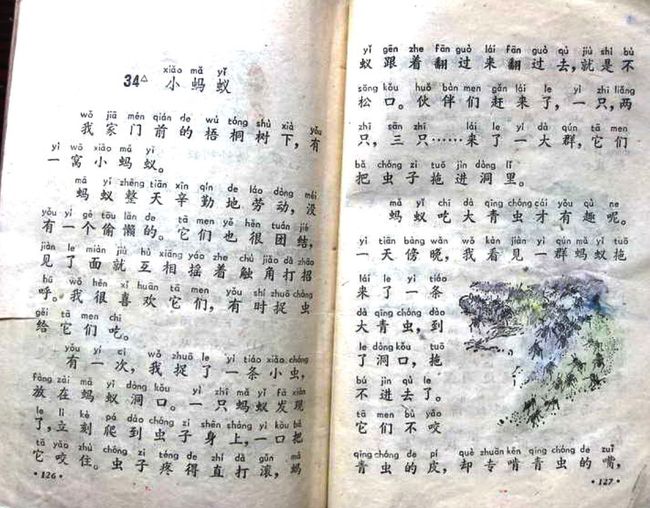 xiǎo mǎ yǐ
34△ 小蚂蚁
wǒ jiā mén qián de wú tóng shù xià yǒu
我家门前的梧桐树下,有
yì wō xiǎo mǎ yǐ
一窝小蚂蚁。
mǎ yǐ zhěng tiān xīn qín de láo dòng méi
蚂蚁整天辛勤地劳动,没
yǒu yí gè tōu lǎn de tā men yě hěn tuán jié
有一个偷懒的。它们也很团结,
jiàn le miàn jiù hù xiāng yáo zhe chù jiǎo dǎ zhāo
见了面就互相摇着触角打招
hū wǒ hěn xǐ huān tā men yǒu shí zhuō chóng
呼。我很喜欢它们,有时捉虫
gěi tā men chī
给它们吃。
yǒu yí cì wǒ zhuō le yì tiáo xiǎo chóng
有一次,我捉了一条小虫,
fàng zài mǎ yǐ dòng kǒu yì zhī mǎ yǐ fā xiàn
放在蚂蚁洞口。一只蚂蚁发现
le lì kè pá dào chóng zi shēn shàng yì kǒu bǎ
了,立刻爬到虫子身上,一口把
tā yǎo zhù chóng zi téng de zhí dǎ gǔn mǎ
它咬住。虫子疼得直打滚,蚂
·126·
yǐ gēn zhe fān guò lái fān guò qù jiù shì bù
蚁跟着翻过来翻过去,就是不
sōng kǒu huǒ bàn men gǎn lái le yì zhī liǎng
松口。伙伴们赶来了,一只,两
zhī sān zhī lái le yí dà qún tā men
只,三只……来了一大群,它们
bǎ chóng zi tuō jìn dòng lǐ
把虫子拖进洞里。
mǎ yǐ chī dà qīng chóng cái yǒu qù ne
蚂蚁吃大青虫才有趣呢。
yì tiān bàng wǎn wǒ kàn jiàn yì qún mǎ yǐ tuō
一天傍晚,我看见一群蚂蚁拖
lái le yì tiáo
来了一条
dà qīng chóng dào
大青虫,到
le dòng kǒu tuō
了洞口,拖
bú jìn qù le
不进去了。
tā men bù yǎo
它们不咬
qīng chóng de pí què zhuān kěn qīng chóng de zuǐ
青虫的皮,却专啃青虫的嘴,
·127·